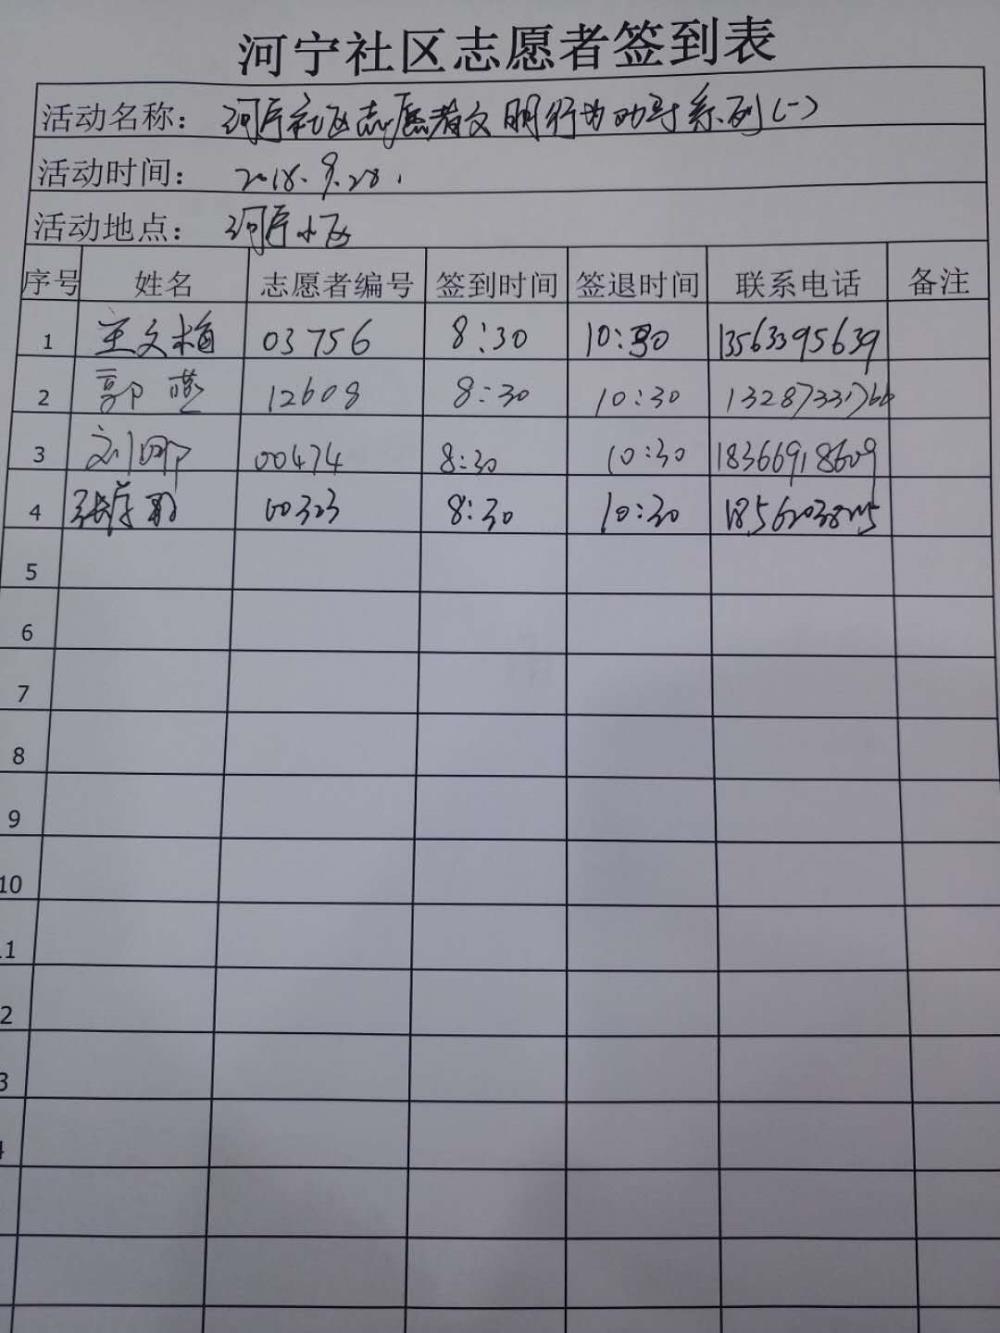 河宁社区志愿者签到表
活动名称： 河宁社区志愿者文明行为劝导系列(一)
活动时间： 2018.9.28.
活动地点： 河宁小区
序号 姓名 志愿者编号 签到时间 签退时间 联系电话 备注
1 王文梅 03756 8:30 10:30 13563395639
2 郭燕 12608 8:30 10:30
3 刘娜 00474 8:30 10:30 18366918609
4 张 00323 8:30 10:30
5
6
7
8
9
10
.1
2
3